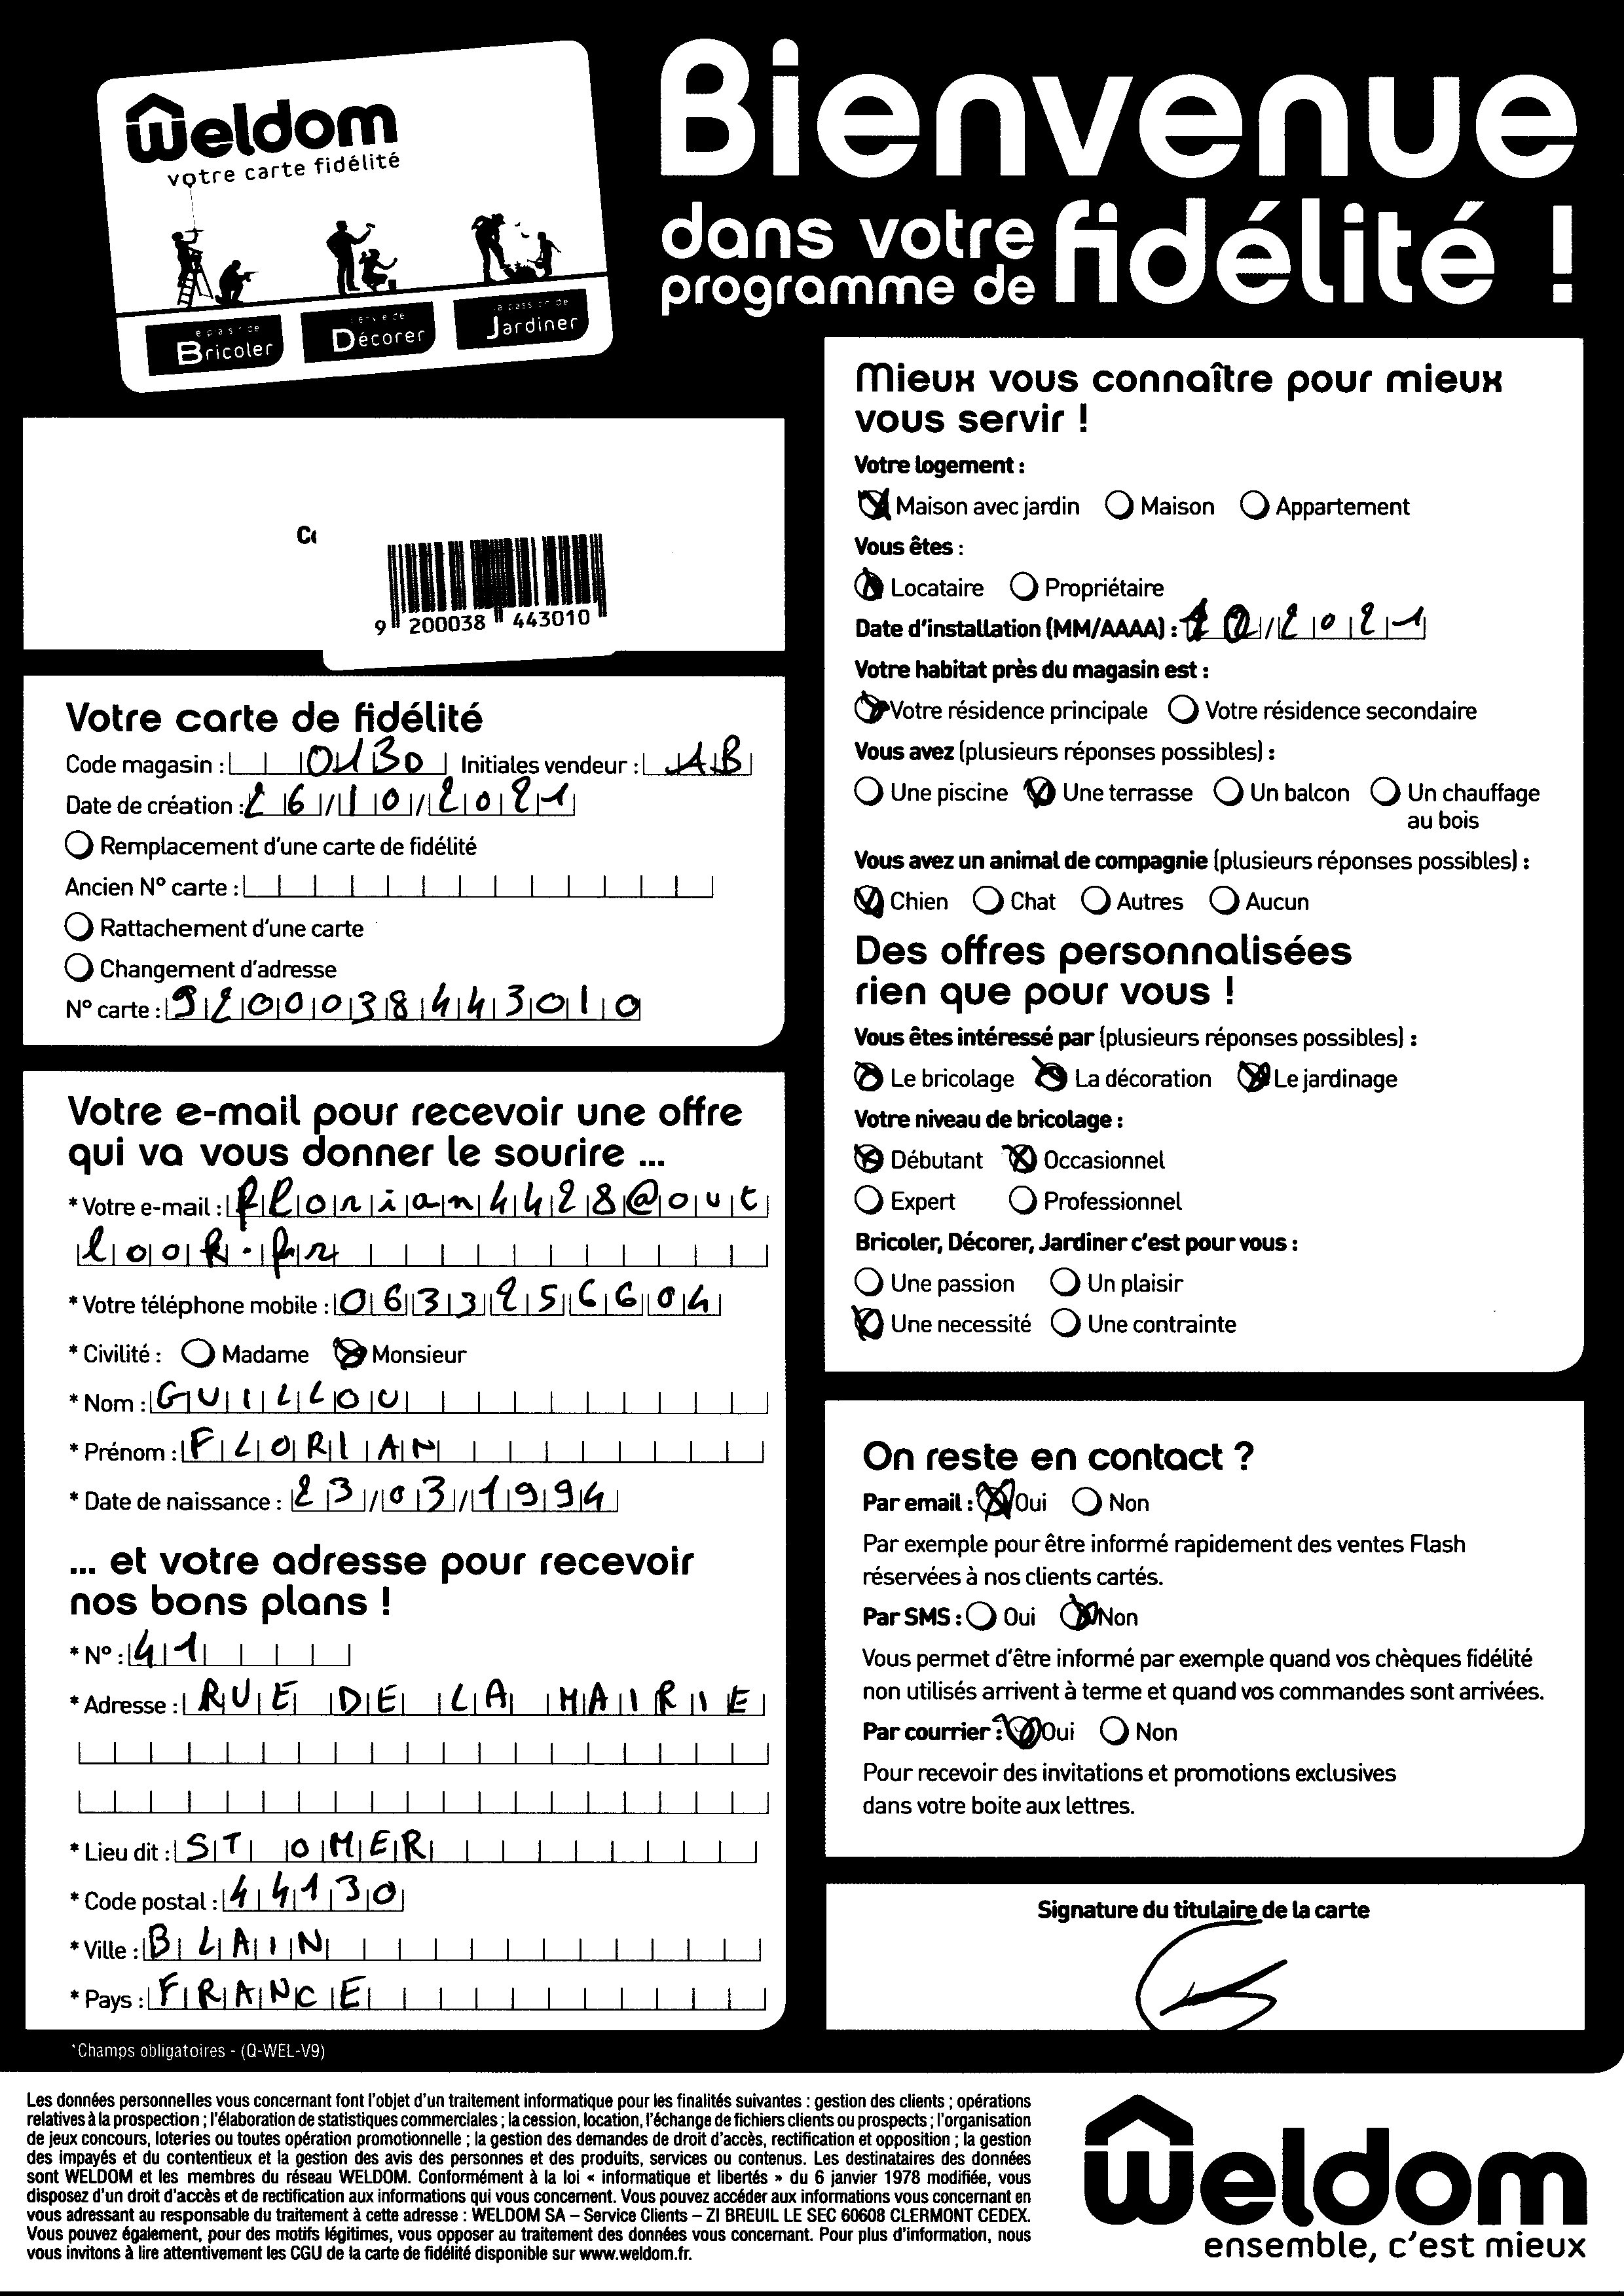 Weldom
votre carte fidélité
Bricoler
Décorer
Jardiner
Bienvenue
dans votre
programme de
fidélité !
9 200038 443010
Votre carte de fidélité
Code magasin : 0130 Initiales vendeur : AB
Date de création : 26/10/2021
Remplacement d'une carte de fidélité
Ancien N° carte :
Rattachement d'une carte
Changement d'adresse
N° carte : 9200038443010
Votre e-mail pour recevoir une offre
qui va vous donner le sourire ...
* Votre e-mail : florian4428@out
look.fr
* Votre téléphone mobile : 0633256604
* Civilité : Madame Monsieur
* Nom : GUILLOU
* Prénom : FLORIAN
* Date de naissance : 23/03/1994
... et votre adresse pour recevoir
nos bons plans !
* N° : 41
* Adresse : RUE DE LA MAIRIE
* Lieu dit : ST OMER
* Code postal : 44130
* Ville : BLAIN
* Pays : FRANCE
*Champs obligatoires - (Q-WEL-V9)
Mieux vous connaître pour mieux
vous servir !
Votre logement :
Maison avec jardin Maison Appartement
Vous êtes :
Locataire Propriétaire
Date d'installation (MM/AAAA) : 10/2021
Votre habitat près du magasin est :
Votre résidence principale Votre résidence secondaire
Vous avez (plusieurs réponses possibles) :
Une piscine Une terrasse Un balcon Un chauffage
au bois
Vous avez un animal de compagnie (plusieurs réponses possibles) :
Chien Chat Autres Aucun
Des offres personnalisées
rien que pour vous !
Vous êtes intéressé par (plusieurs réponses possibles) :
Le bricolage La décoration Le jardinage
Votre niveau de bricolage :
Débutant Occasionnel
Expert Professionnel
Bricoler, Décorer, Jardiner c'est pour vous :
Une passion Un plaisir
Une necessité Une contrainte
On reste en contact ?
Par email : Oui Non
Par exemple pour être informé rapidement des ventes Flash
réservées à nos clients cartés.
Par SMS : Oui Non
Vous permet d'être informé par exemple quand vos chèques fidélité
non utilisés arrivent à terme et quand vos commandes sont arrivées.
Par courrier : Oui Non
Pour recevoir des invitations et promotions exclusives
dans votre boite aux lettres.
Signature du titulaire de la carte
Les données personnelles vous concernant font l'objet d'un traitement informatique pour les finalités suivantes : gestion des clients ; opérations
relatives à la prospection ; l'élaboration de statistiques commerciales ; la cession, location, l'échange de fichiers clients ou prospects ; l'organisation
de jeux concours, loteries ou toutes opération promotionnelle ; la gestion des demandes de droit d'accès, rectification et opposition ; la gestion
des impayés et du contentieux et la gestion des avis des personnes et des produits, services ou contenus. Les destinataires des données
sont WELDOM et les membres du réseau WELDOM. Conformément à la loi « informatique et libertés » du 6 janvier 1978 modifiée, vous
disposez d'un droit d'accès et de rectification aux informations qui vous concernent. Vous pouvez accéder aux informations vous concernant en
vous adressant au responsable du traitement à cette adresse : WELDOM SA – Service Clients – ZI BREUIL LE SEC 60608 CLERMONT CEDEX.
Vous pouvez également, pour des motifs légitimes, vous opposer au traitement des données vous concernant. Pour plus d'information, nous
vous invitons à lire attentivement les CGU de la carte de fidélité disponible sur www.weldom.fr.
Weldom
ensemble, c'est mieux